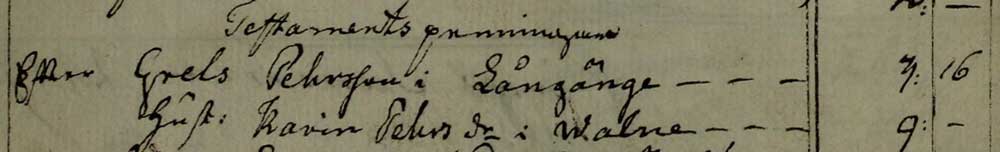 Testaments penningarne
Efter Grels Pehrsson i Långänge - - - 7: 16
Hust: Karin Pehrs dr i Walne - - - 9: -